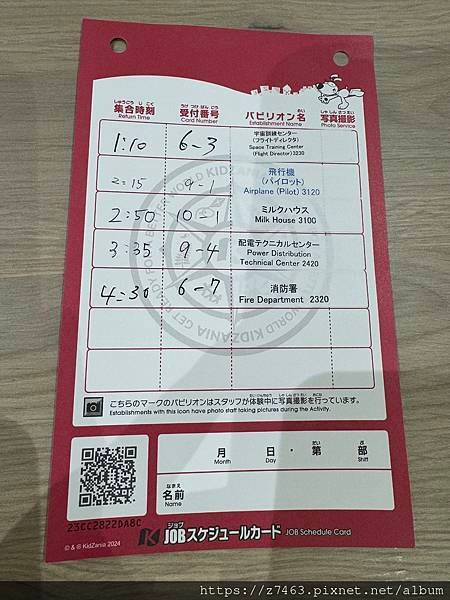 しゅうごう じ こく
集合時刻
Return Time
うけ つけ ばん ごう
受付番号
Card Number
パビリオン名
めい
Establishment Name
しゃ しん さつ えい
写真撮影
Photo Service
1:10
6-3
宇宙訓練センター
(フライトディレクタ)
Space Training Center
(Flight Director)3230
2:15
9-1
飛行機
(パイロット)
Airplane (Pilot) 3120
2:50
10-1
ミルクハウス
Milk House 3100
3:35
9-4
配電テクニカルセンター
Power Distribution
Technical Center 2420
4:30
6-7
消防署
Fire Department 2320
こちらのマークのパビリオンはスタッフが体験中に写真撮影を行っています。
Establishments with this icon have photo staff taking pictures during the Activity.
月
Month
日
Day
・
だい
第
ぶ
部
Shift
なまえ
名前
Name
23CC2822DA8C
© & ® KidZania 2024
ジョブ
JOBスケジュールカード JOB Schedule Card
https://z7463.pixnet.net/album